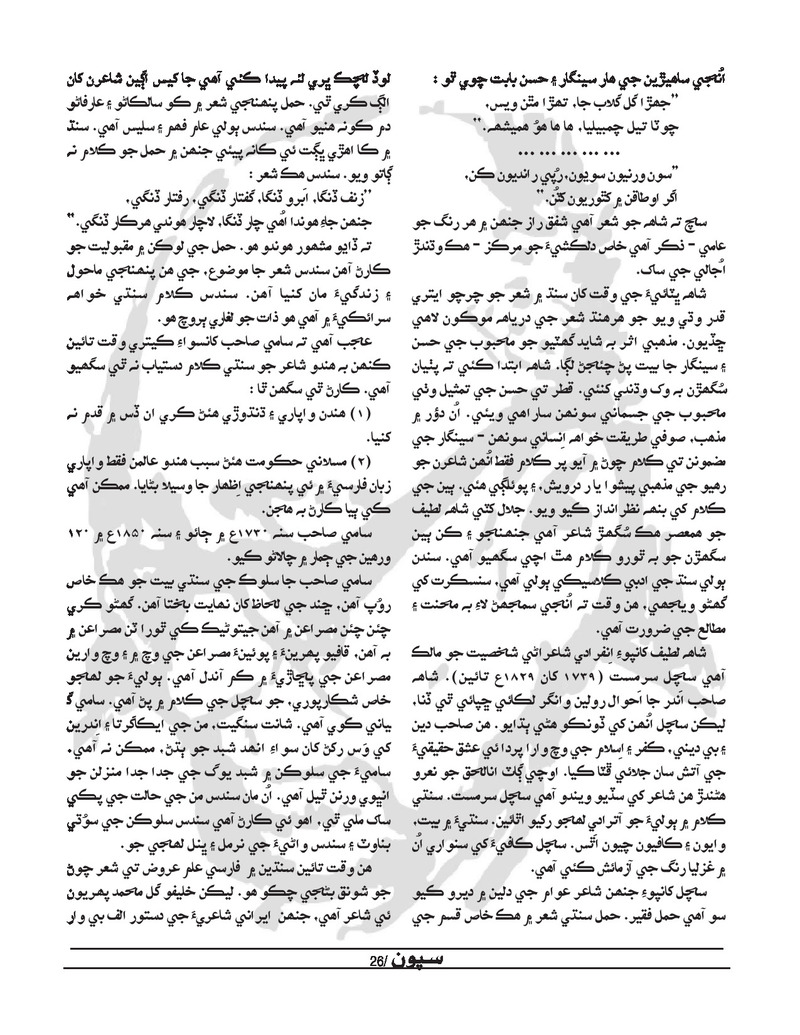 اُنجي ساھيڙين جي ھار سينگار ۽ حسن بابت چوي ٿو :
”جھڙا گل گلاب جا، تھڙا مٿن ويس،
چوٽا تيل چمبيليا، ھا ھا ھوُ ھميشھ.“
... ... ... ... ...
”سون ورنيون سوڍيون، رُپي رانديون ڪن،
اگر اوطاقن ۾ کٿوريون کٽُن.“
سچ تہ شاھ جو شعر آھي شفق راز جنھن ۾ ھر رنگ جو
عامي – ذڪر آھي خاص دلڪشيءَ جو مرڪز – ھڪ وڌندڙ
اُجالي جي ساک.
شاھ ڀٽائيءَ جي وقت کان سنڌ ۾ شعر جو چرچو ايتري
قدر وڌي ويو جو ھرھنڌ شعر جي درياھہ موڪون لاھي
ڇڏيون. مذھبي اثر بہ شايد گھٽيو جو محبوب جي حسن
۽ سينگار جا بيت پڻ چئجڻ لڳا. شاھ ابتدا ڪئي تہ پٺيان
سُگھڙن بہ وک وڌندي کنئي. قطر تي حسن جي تمثيل وٺي
محبوب جي جسماني سونھن ساراھي ويئي. اُن دؤر ۾
مذھب، صوفي طريقت خواھہ اِنساني سونھن – سينگار جي
مضمونن تي ڪلام چوڻ ۾ آيو پر ڪلام فقط اُنھن شاعرن جو
رھيو جي مذھبي پيشوا يار درويش، ۽ پوئلڳي ھئي. ٻين جي
ڪلام کي بنھہ نظر انداز ڪيو ويو. جلال کٽي شاھ لطيف
جو ھمعصر ھڪ سُگھڙ شاعر آھي جنھنجو ۽ ڪن ٻين
سگھڙن جو بہ ٿورو ڪلام ھٿ اچي سگھيو آھي. سندن
ٻولي سنڌ جي ادبي ڪلاسيڪي ٻولي آھي، سنسڪرت کي
گھڻو ويجھي، ھن وقت تہ اُنجي سمجھڻ لاءِ بہ محنت ۽
مطالع جي ضرورت آھي.
شاھ لطيف کانپوءِ اِنفرادي شاعراڻي شخصيت جو مالڪ
آھي سچل سرمست (۱۷۳۹ کان ۱۸۲۹ع تائين). شاھ
صاحب اَندر جا اَحوال رولين وانگر لڪائي ڇپائي ٿي ڏنا،
ليڪن سچل اُنھن کي ڏونڪو ھڻي ٻڌايو. ھن صاحب دين
۽ بي ديني، ڪفر ۽ اِسلام جي وچ وارا پردا ئي عشق حقيقيءَ
جي آتش سان جلائي ڦٽا ڪيا. اوچي ڳاٽ انالحق جو نعرو
ھڻندڙ ھن شاعر کي سڏيو ويندو آھي سچل سرمست. سنڌي
ڪلام ۾ ٻوليءَ جو اُترادي لھجو رکيو اٿائين. سنڌيءَ ۾ بيت،
وايون ۽ ڪافيون چيون اَٿس. سچل ڪافيءَ کي سنواري اُن
۾ غزليا رنگ جي آزمائش ڪئي آھي.
سچل کانپوءِ جنھن شاعر عوام جي دلين ۾ ديرو ڪيو
سو آھي حمل فقير. حمل سنڌي شعر ۾ ھڪ خاص قسم جي
لوڏ لچڪ ڀري لئہ پيدا ڪئي آھي جا کيس اڳين شاعرن کان
الڳ ڪري ٿي. حمل پنھنجي شعر ۾ ڪو سالڪاڻو ۽ عارفاڻو
دم ڪونہ ھنيو آھي. سندس ٻولي عام فھم ۽ سليس آھي. سنڌ
۾ ڪا اھڙي ڀڳت ئي ڪانہ پيئي جنھن ۾ حمل جو ڪلام نہ
ڳاتو ويو. سندس ھڪ شعر :
”زلف ڏنگا، اَبرو ڏنگا، گفتار ڏنگي، رفتار ڏنگي،
جنھن جاءِ ھوندا اُھي چار ڏنگا، لاچار ھوندي ھرڪار ڏنگي.“
تہ ڏاڍو مشھور ھوندو ھو. حمل جي لوڪن ۾ مقبوليت جو
ڪارڻ آھن سندس شعر جا موضوع، جي ھن پنھنجي ماحول
۽ زندگيءَ مان کنيا آھن. سندس ڪلام سنڌي خواھہ
سرائڪيءَ ۾ آھي ھو ذات جو لغاري ٻروچ ھو.
عاجب آھي تہ سامي صاحب کانسواءِ ڪيتري وقت تائين
ڪنھن بہ ھندو شاعر جو سنڌي ڪلام دستياب نہ ٿي سگھيو
آھي. ڪارڻ ٿي سگھن ٿا :
(۱) ھندن واپاري ۽ ڌنڌوڙي ھئڻ ڪري ان ڏس ۾ قدم نہ
کنيا.
(۲) مسلاني حڪومت ھئڻ سبب ھندو عالمن فقط واپاري
زبان فارسيءَ ۾ ئي پنھنجي اظھار جا وسيلا بڻايا. ممڪن آھي
ڪي ٻيا ڪارڻ بہ ھجن.
سامي صاحب سنہ ۱۷۳۰ع ۾ ڄائو ۽ سنہ ۱۸۵۰ع ۾ ۱۲۰
ورھين جي ڄمار ۾ چالاڻو ڪيو.
سامي صاحب جا سلوڪ جي سنڌي بيت جو ھڪ خاص
روُپ آھن، ڇند جي لحاظ کان نھايت پختا آھن. گھڻو ڪري
چئن چئن مصراعن ۾ آھن جيتوڻيڪ ڪي ٿورا ٽن مصراعن ۾
بہ آھن، قافيو پھرينءَ ۽ پوئينءَ مصراعن جي وچ ۾ ۽ وچ وارين
مصراعن جي پڇاڙيءَ ۾ ڪم آندل آھي. ٻوليءَ جو لھجو
خاص شڪارپوري، جو سچل جي ڪلام ۾ پڻ آھي. سامي گ
يباني ڪوي آھي. شانت سنگيت، من جي ايڪاگرتا ۽ اِندرين
کي وَس رکڻ کان سواءِ انھد شبد جو ٻڌڻ، ممڪن نہ آھي،
ساميءَ جي سلوڪن ۾ شبد يوگ جي جدا جدا منزلن جو
انڀوي ورنن ٿيل آھي. اُن مان سندس من جي حالت جي پڪي
ساک ملي ٿي، اھو ئي ڪارڻ آھي سندس سلوڪن جي سوُتي
بناوٽ ۽ سندس واڻيءَ جي نرمل ۽ ڀنل لھجي جو.
ھن وقت تائين سنڌين ۾ فارسي علم عروض تي شعر چوڻ
جو شونق بڻجي چڪو ھو. ليڪن خليفو گل محمد پھريون
ئي شاعر آھي، جنھن ايراني شاعريءَ جي دستور الف بي وار
سپون /26